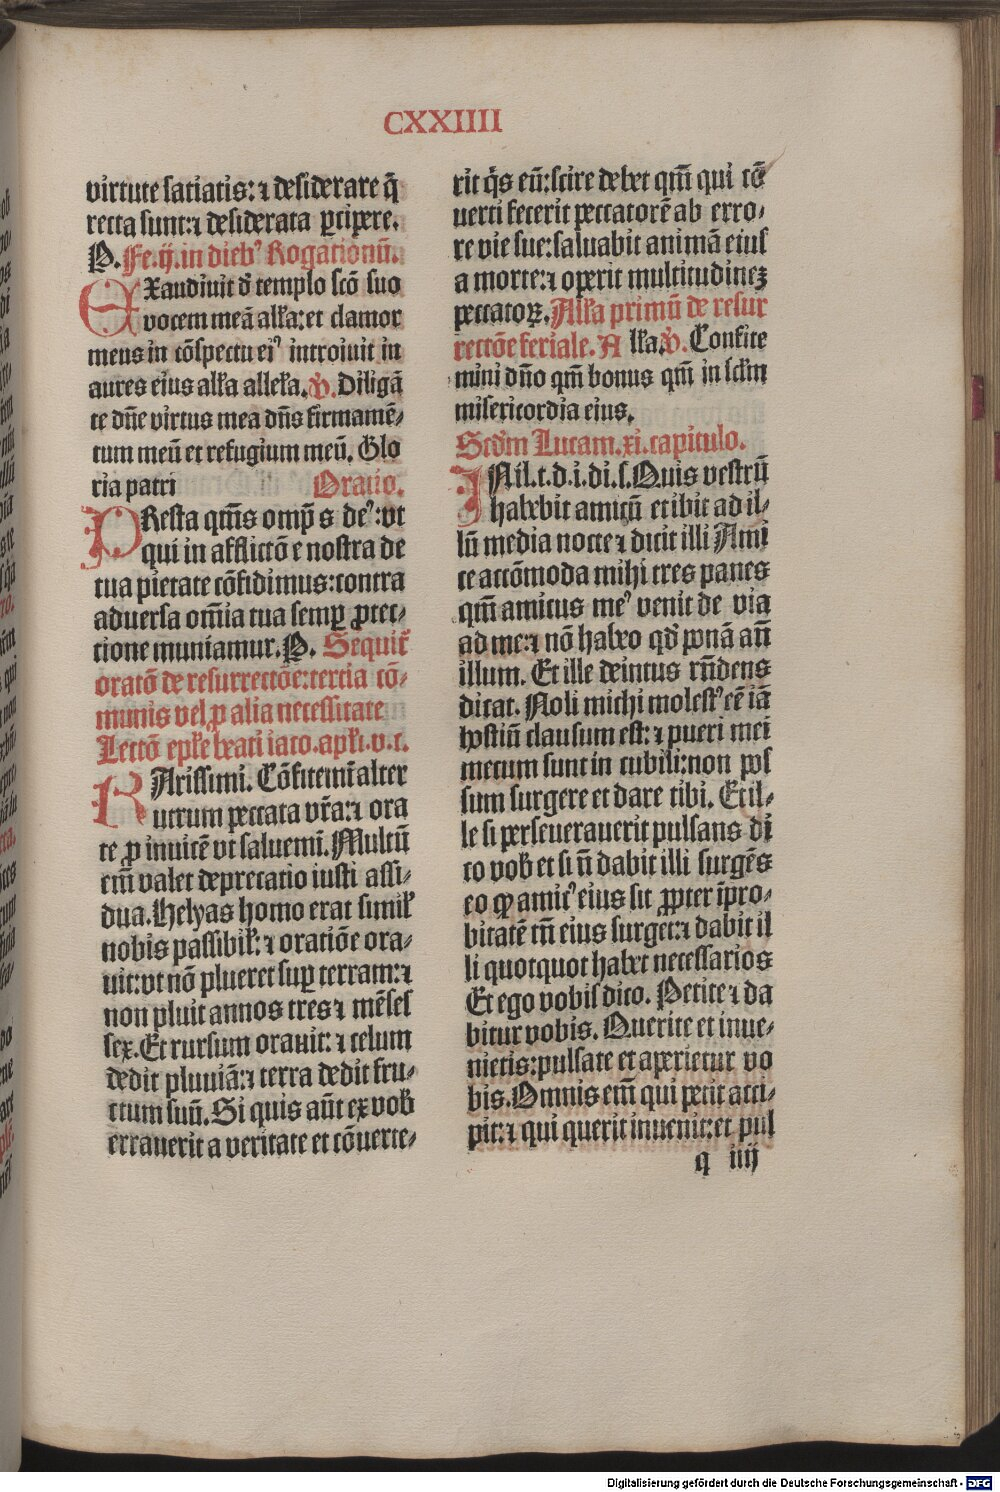 CXXIIII
virtute satiatis: ⁊ desiderare q̄
recta sunt: ⁊ desiderata ꝑcipere.
P. Fe. ij. in diebꝰ Rogationū.
EXaudiuit d̄ templo scō suo
vocem meā alla: et clamor
meus in cōspectu eiꝰ introiuit in
aures eius alla allela. v̄. Diligā
te dn̄e virtus mea dn̄s firmamē-
tum meū et refugium meū. Glo
ria patri Oratio.
PResta qm̄s omp̄s deꝰ: vt
qui in afflictōe nostra de
tua pietate cōfidimus: contra
aduersa om̄ia tua semꝑ ꝓtec-
tione muniamur. P. Sequit̄
oratō de resurrectōe: tercia cō-
munis vel ꝓ alia necessitate
Lectō ep̄le beati iaco. apl̄i. v. c.
KArissimi. Cōfitemī alter
utrum peccata vr̄a: ⁊ ora
te ꝓ inuicē vt saluemī. Multū
em̄ valet deprecatio iusti assi-
dua. Helyas homo erat simil̄
nobis passibil̄: ⁊ oratiōe ora-
uit: vt nō plueret suꝑ terram: ⁊
non pluit annos tres ⁊ mēses
sex. Et rursum orauit: ⁊ celum
dedit pluuiā: ⁊ terra dedit fru-
ctum suū. Si quis aūt ex vob̄
errauerit a veritate et cōuerte-
rit q̄s eū: scire debet qm̄ qui cō
uerti fecerit peccatorē ab erro-
re vie sue: saluabit animā eius
a morte: ⁊ operit multitudineꝫ
peccatoꝝ. Alla primū de resur
rectōe feriale. Alla. v̄. Confite
mini dn̄o qm̄ bonus qm̄ in sclm̄
misericordia eius.
Scd̄m Lucam. xi. capitulo.
IN il. t. d. i. di. s. Quis vestrū
habebit amicū et ibit ad il-
lū media nocte ⁊ dicit illi Ami
ce accōmoda mihi tres panes
qm̄ amicus meꝰ venit de via
ad me: ⁊ nō habeo qd̄ ponā an̄
illum. Et ille deintus rn̄dens
dicat. Noli michi molestꝰ eē iā
hostiū clausum est: ⁊ pueri mei
mecum sunt in cubili: non pos
sum surgere et dare tibi. Et il-
le si perseuerauerit pulsans di
co vob̄ et si n̄ dabit illi surgēs
eo ꝙ amicꝰ eius sit ꝓpter īpro-
bitatē tn̄ eius surget: ⁊ dabit il
li quotquot habet necessarios
Et ego vobis dico. Petite ⁊ da
bitur vobis. Querite et inue-
nietis: pulsate et aperietur vo
bis. Omnis em̄ qui petit acci-
pit: ⁊ qui querit inuenit: et pul
q iiij
Digitalisierung gefördert durch die Deutsche Forschungsgemeinschaft - DFG